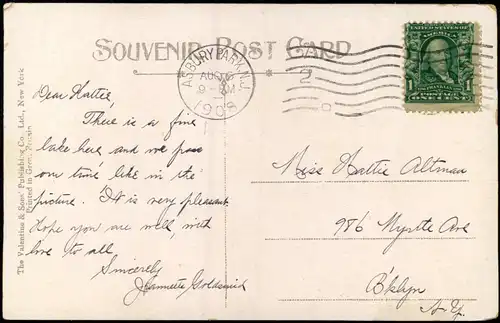 SOUVENIR POST CARD
ASBURY PARK, N.J.
AUG
1908
UNITED STATES OF AMERICA
1
POSTAGE
ONE CENT
1
The Valentine & Sons' Publishing Co., Ltd., New York
Printed in Great Britain
Dear Hattie,
There is a fine
lake here and we pass
our time like in the
picture. It is very pleasant.
Hope you are well, with
love to all.
Sincerely
Jeannette Goldsmith
Miss Hattie Altman
986 Myrtle Ave
B'klyn
N.Y.